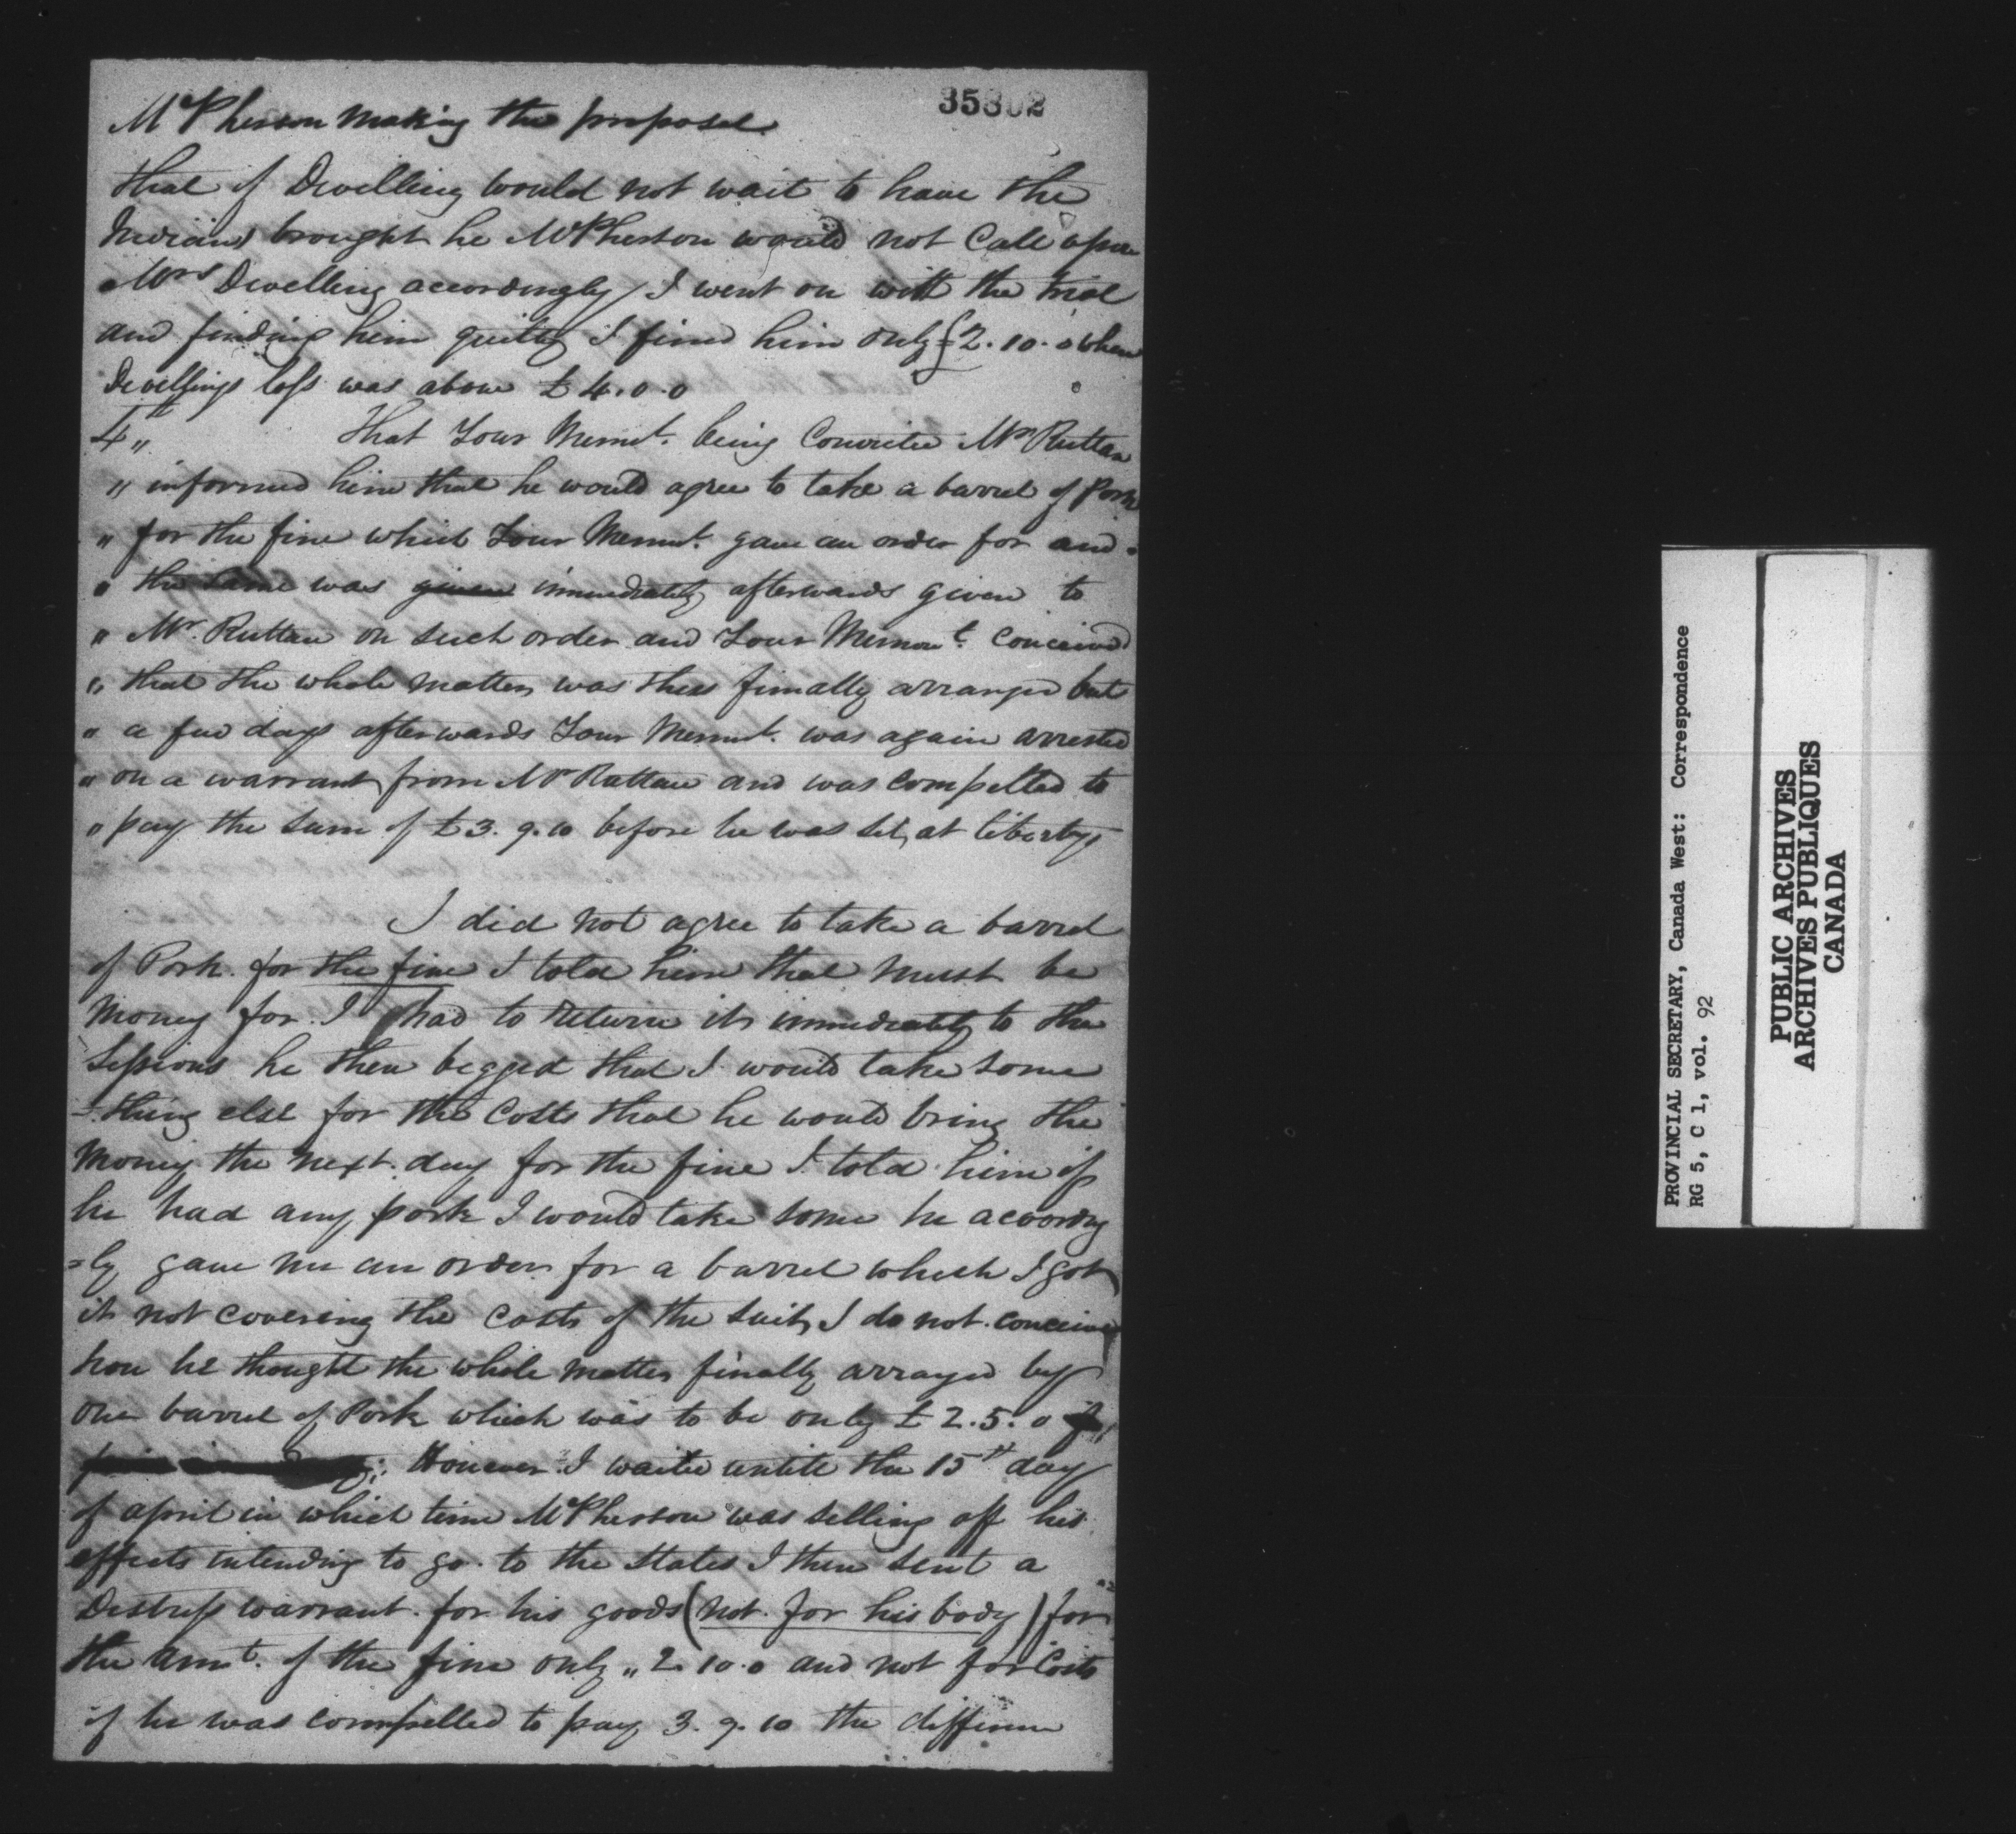 35302
McPherson making the proposal.
that if Dwelling would not wait to have the
Indians brought he McPherson would not Call upon
Mrs Dwelling accordingly I went on with the trial
and finding him guilty I fined him only £2.10.0 when
Dwellings loss was above £4.0.0
4th That Your Memt. being Convicted Mr Ruttan
" informed him that he would agree to take a barrel of Pork
" for the fine which Your Memt. gave an order for and
" the same was given immediately afterwards given to
" Mr. Ruttan on such order and Your Memont. conceived
" that the whole matter was thus finally arranged but
" a few days afterwards Your Memt. was again arrested
" on a warrant from Mr Ruttan and was compelled to
" pay the sum of £3.9.10 before he was set at liberty,
I did not agree to take a barrel
of Pork. for the fine I told him that must be
Money for I had to return it immediately to the
Sessions he then begged that I would take some
=thing else for the Costs that he would bring the
Money the next day for the fine I told him if
he had any pork I would take some he according
=ly gave me an order for a barrel which I got
it not covering the costs of the suit, I do not conceive
how he thought the whole matter finally arranged by
one barrel of Pork which was to be only £2.5.0
However I waited untill the 15th day
of april in which time McPherson was selling off his
effects intending to go to the States I then sent a
Distress warrant for his goods (not for his body) for
the amt. of the fine only " 2.10.0 and not for Costs
if he was compelled to pay 3.9.10 the difference
PROVINCIAL SECRETARY, Canada West: Correspondence
RG 5, C 1, vol. 92
PUBLIC ARCHIVES
ARCHIVES PUBLIQUES
CANADA